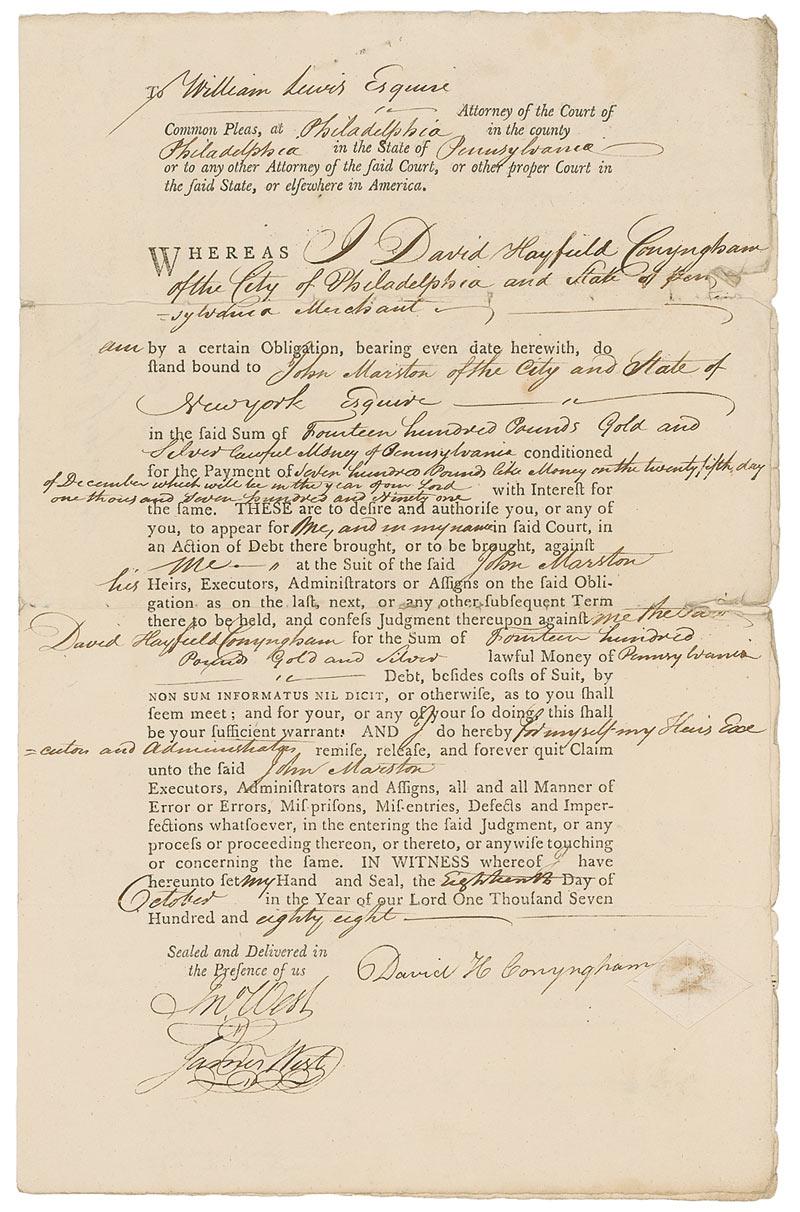 To William Lewis Esquire
Attorney of the Court of
Common Pleas, at Philadelphia in the county
Philadelphia in the State of Pennsylvania
or to any other Attorney of the ſaid Court, or other proper Court in
the ſaid State, or elſewhere in America.
WHEREAS I David Hayfield Conyngham
of the City of Philadelphia and State of Pen
=sylvania Merchant
am by a certain Obligation, bearing even date herewith, do
ſtand bound to John Marston of the City and State of
Newyork Esquire
in the ſaid Sum of Fourteen hundred Pounds Gold and
Silver lawful Money of Pennsylvania conditioned
for the Payment of Seven hundred Pounds like Money on the twenty fifth day
of December which will be in the year of our Lord
one thousand Seven hundred and Ninety one with Intereſt for
the ſame. THESE are to deſire and authoriſe you, or any of
you, to appear for Me, and in my name in ſaid Court, in
an Action of Debt there brought, or to be brought, againſt
Me at the Suit of the ſaid John Marston
his Heirs, Executors, Adminiſtrators or Aſſigns on the ſaid Obli-
gation as on the laſt, next, or any other ſubſequent Term
there to be held, and confeſs Judgment thereupon againſt me the Said
David Hayfield Conyngham for the Sum of Fourteen hundred
Pounds Gold and Silver lawful Money of Pennsylvania
Debt, beſides coſts of Suit, by
NON SUM INFORMATUS NIL DICIT, or otherwiſe, as to you ſhall
ſeem meet; and for your, or any of your ſo doing, this ſhall
be your ſufficient warrant. AND I do hereby for myself my Heirs Exe
=cutors and Administrators remiſe, releaſe, and forever quit Claim
unto the ſaid John Marston
Executors, Adminiſtrators and Aſſigns, all and all Manner of
Error or Errors, Miſ-priſons, Miſ-entries, Defects and Imper-
fections whatſoever, in the entering the ſaid Judgment, or any
proceſs or proceeding thereon, or thereto, or anywiſe touching
or concerning the ſame. IN WITNESS whereof I have
hereunto ſet my Hand and Seal, the Eighteenth Day of
October in the Year of our Lord One Thouſand Seven
Hundred and eighty eight
Sealed and Delivered in
the Preſence of us
David H Conyngham
Jno. West
James West